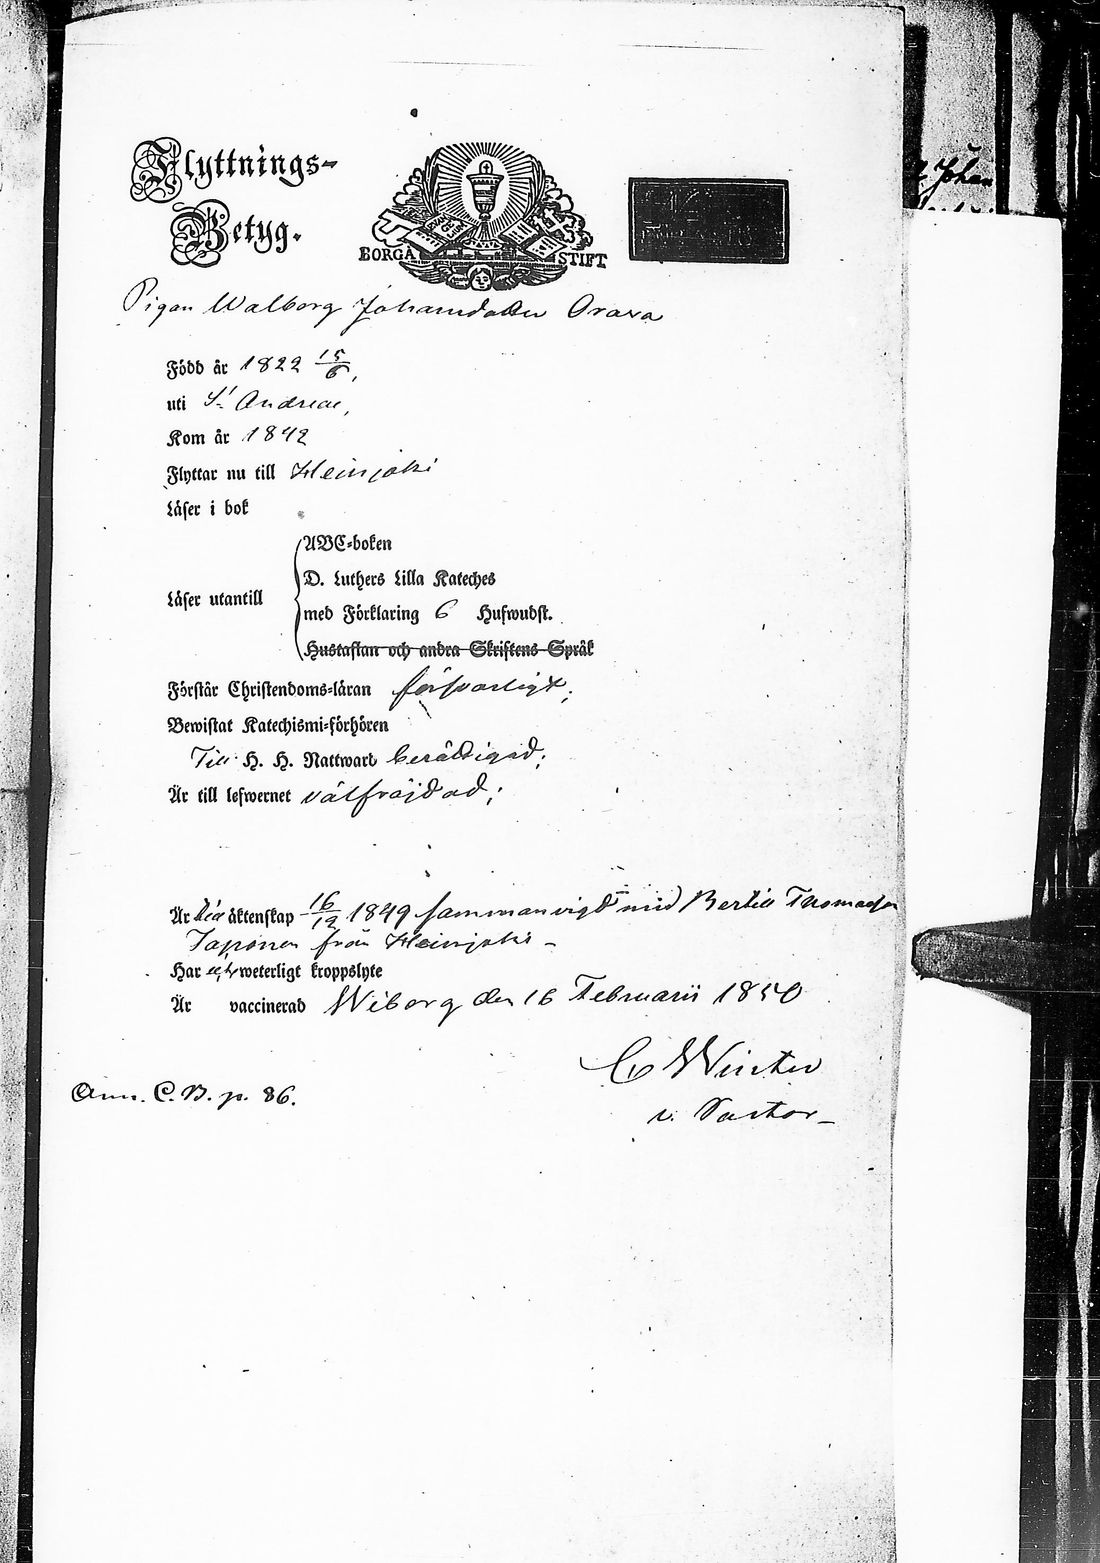 Flyttnings-
Betyg.
EVAN
GE
LIUM
BORGÅ STIFT
Pigan Walborg Johansdotter Oraxa
Född år 1822 15/6,
uti St Andreae,
Kom år 1842
Flyttar nu till Heinjoki
Läser i bok
Läser utantill
ABC-boken
D. Luthers Lilla Kateches
med Förklaring 6 Hufwudst.
Hustaflan och andra Skriftens Språk
Förstår Christendoms-läran försvarligt;
Bewistat Katechismi-förhören
Till H. H. Nattward berättigad;
Är till lefwernet välfräjdad;
Är till äktenskap 16/12 1849 sammanvigd med Bertil Thomasson
Japonen från Heinjoki -
Har ej weterligt kroppslyte
Är vaccinerad Wiborg den 16 Februarii 1850
C Winter
v. Pastor -
Ann. C. B. p. 86.
Johan